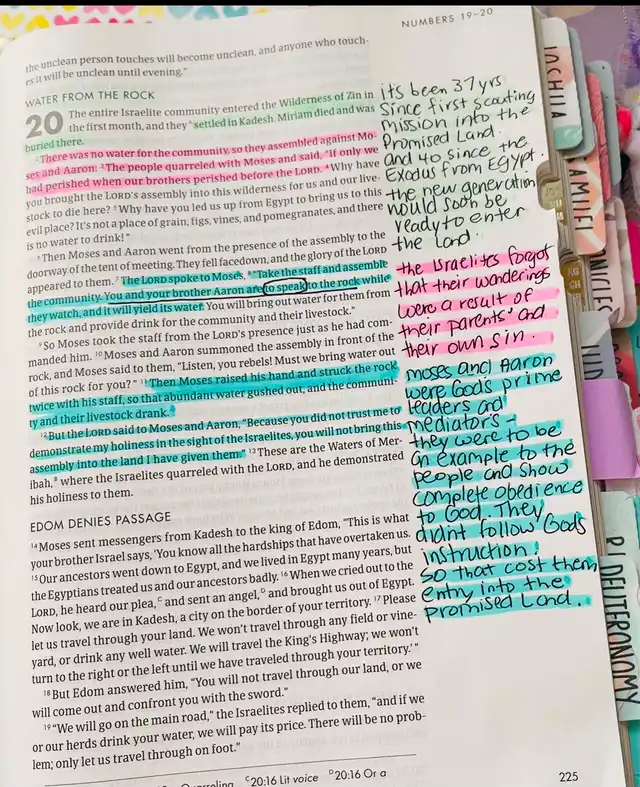 NUMBERS 19–20
the unclean person touches will become unclean, and anyone who touch-
es it will be unclean until evening."
WATER FROM THE ROCK
20 The entire Israelite community entered the Wilderness of Zin in
the first month, and they settled in Kadesh. Miriam died and was
buried there.
2 There was no water for the community, so they assembled against Mo-
ses and Aaron. 3 The people quarreled with Moses and said, "If only we
had perished when our brothers perished before the LORD. 4 Why have
you brought the LORD's assembly into this wilderness for us and our live-
stock to die here? 5 Why have you led us up from Egypt to bring us to this
evil place? It's not a place of grain, figs, vines, and pomegranates, and there
is no water to drink!"
6 Then Moses and Aaron went from the presence of the assembly to the
doorway of the tent of meeting. They fell facedown, and the glory of the LORD
appeared to them. 7 The LORD spoke to Moses, 8 "Take the staff and assemble
the community. You and your brother Aaron are to speak to the rock while
they watch, and it will yield its water. You will bring out water for them from
the rock and provide drink for the community and their livestock."
9 So Moses took the staff from the LORD's presence just as he had com-
manded him. 10 Moses and Aaron summoned the assembly in front of the
rock, and Moses said to them, "Listen, you rebels! Must we bring water out
of this rock for you?" 11 Then Moses raised his hand and struck the rock
twice with his staff, so that abundant water gushed out, and the communi-
ty and their livestock drank.
12 But the LORD said to Moses and Aaron, "Because you did not trust me to
demonstrate my holiness in the sight of the Israelites, you will not bring this
assembly into the land I have given them." 13 These are the Waters of Mer-
ibah, where the Israelites quarreled with the LORD, and he demonstrated
his holiness to them.
EDOM DENIES PASSAGE
14 Moses sent messengers from Kadesh to the king of Edom, "This is what
your brother Israel says, 'You know all the hardships that have overtaken us.
15 Our ancestors went down to Egypt, and we lived in Egypt many years, but
the Egyptians treated us and our ancestors badly. 16 When we cried out to the
LORD, he heard our plea,C and sent an angel,D and brought us out of Egypt.
Now look, we are in Kadesh, a city on the border of your territory. 17 Please
let us travel through your land. We won't travel through any field or vine-
yard, or drink any well water. We will travel the King's Highway; we won't
turn to the right or the left until we have traveled through your territory.'"
18 But Edom answered him, "You will not travel through our land, or we
will come out and confront you with the sword."
19 "We will go on the main road," the Israelites replied to them, "and if we
or our herds drink your water, we will pay its price. There will be no prob-
lem; only let us travel through on foot."
C20:16 Lit voice D20:16 Or a
225
its been 37 yrs
since first scouting
mission into the
Promised Land.
and 40 since the
Exodus from Egypt.
the new generation
would soon be
ready to enter
the land.
the Israelites forgot
that their wanderings
were a result of
their parents' and
their own sin.
moses and Aaron
were God's prime
leaders and
mediators -
they were to be
an example to the
people and show
complete obedience
to God. They
didnt follow Gods
instruction!
So that cost them
entry into the
promised Land.
JOSHUA
DEUTERONOMY